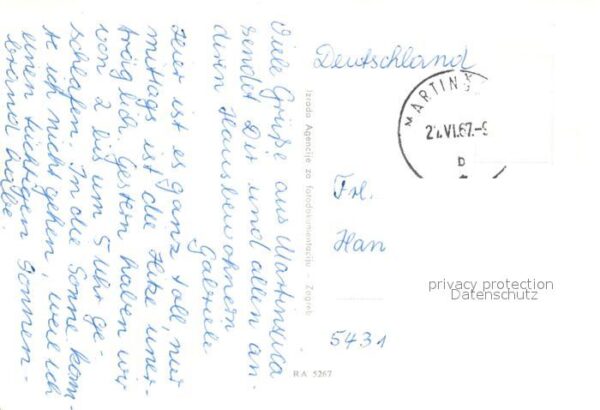 Viele Grüße aus Martinšcica
sendet Dir und allen an-
deren Hausbewohnern
Gabriele
Hier ist es ganz toll, nur
mittags ist die Hitze uner-
träglich. Gestern haben wir
von 2 bis um 5 Uhr ge-
schlafen. In die Sonne konn-
te ich nicht gehen, weil ich
einen tüchtigen Sonnen-
brand habe.
Izrada Agencije za fotodokumentaciju Zagreb
Deutschland
MARTINŠ
VI.67.-9
D
Frl.
Han
5431
privacy protection
Datenschutz
RA 5267